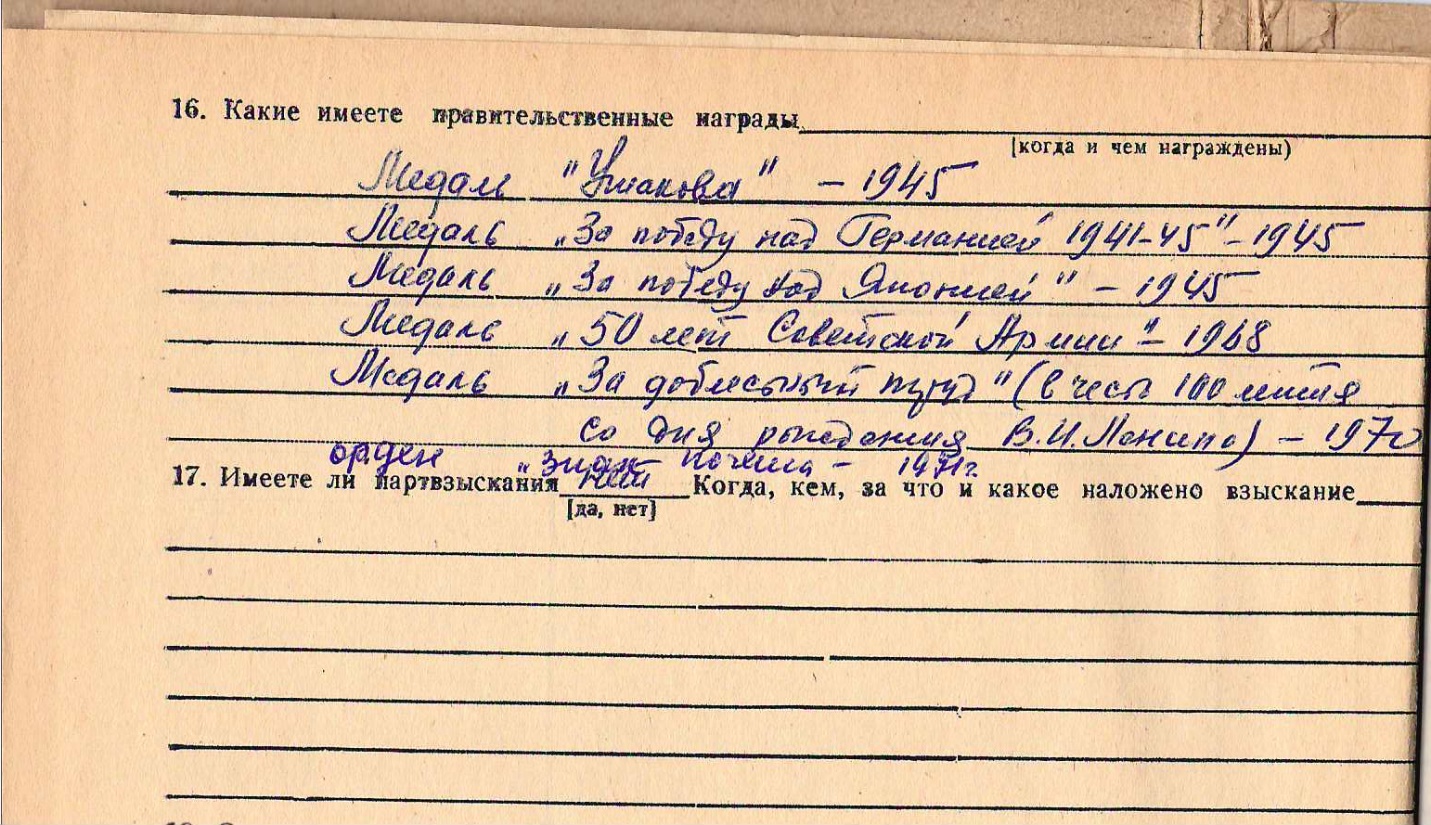 16. Какие имеете правительственные награды
[когда и чем награждены)
Медаль "Ушакова" – 1945
Медаль „За победу над Германией 1941-45" – 1945
Медаль „За победу над Японией" – 1945
Медаль „50 лет Советской Армии" – 1968
Медаль „За доблестный труд" (в честь 100 летия
со дня рождения В.И. Ленина) – 1970
орден „Знак почета – 1971г.
17. Имеете ли партвзыскания нет Когда, кем, за что и какое наложено взыскание
[да, нет]